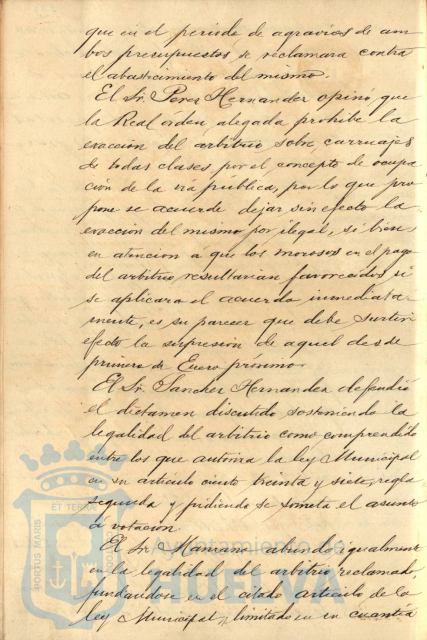 que en el periodo de agravios de am
bos presupuestos se reclamara contra
el abastecimiento del mismo.
El Sr. Perez Hernandez opinó que
la Real orden alegada prohibe la
exacción del arbitrio sobre carruajes
de todas clases por el concepto de ocupa
ción de la via pública, por lo que pro
pone se acuerde dejar sin efecto la
exacción del mismo por ilegal, si bien
en atención a que los morosos en el pago
del arbitrio resultarian favorecidos si
se aplicara el acuerdo inmediata
mente, es su parecer que debe surtir
efecto la supresión de aquel desde
primero de Enero próximo.
El Sr. Sanchez Hernandez defendió
el dictamen discutido sosteniendo la
legalidad del arbitrio como comprendido
entre los que autoriza la ley Municipal
en su articulo ciento treinta y siete, regla
segunda y pidiendo se someta el asunto
a votación
El Sr. abundó igualmente
en la legalidad del arbitrio reclamado,
fundandose en el citado articulo de la
ley Municipal y limitado en su cuantía
PORTUS MARIS
ET TERRAE
Ayuntamiento de
HUELVA